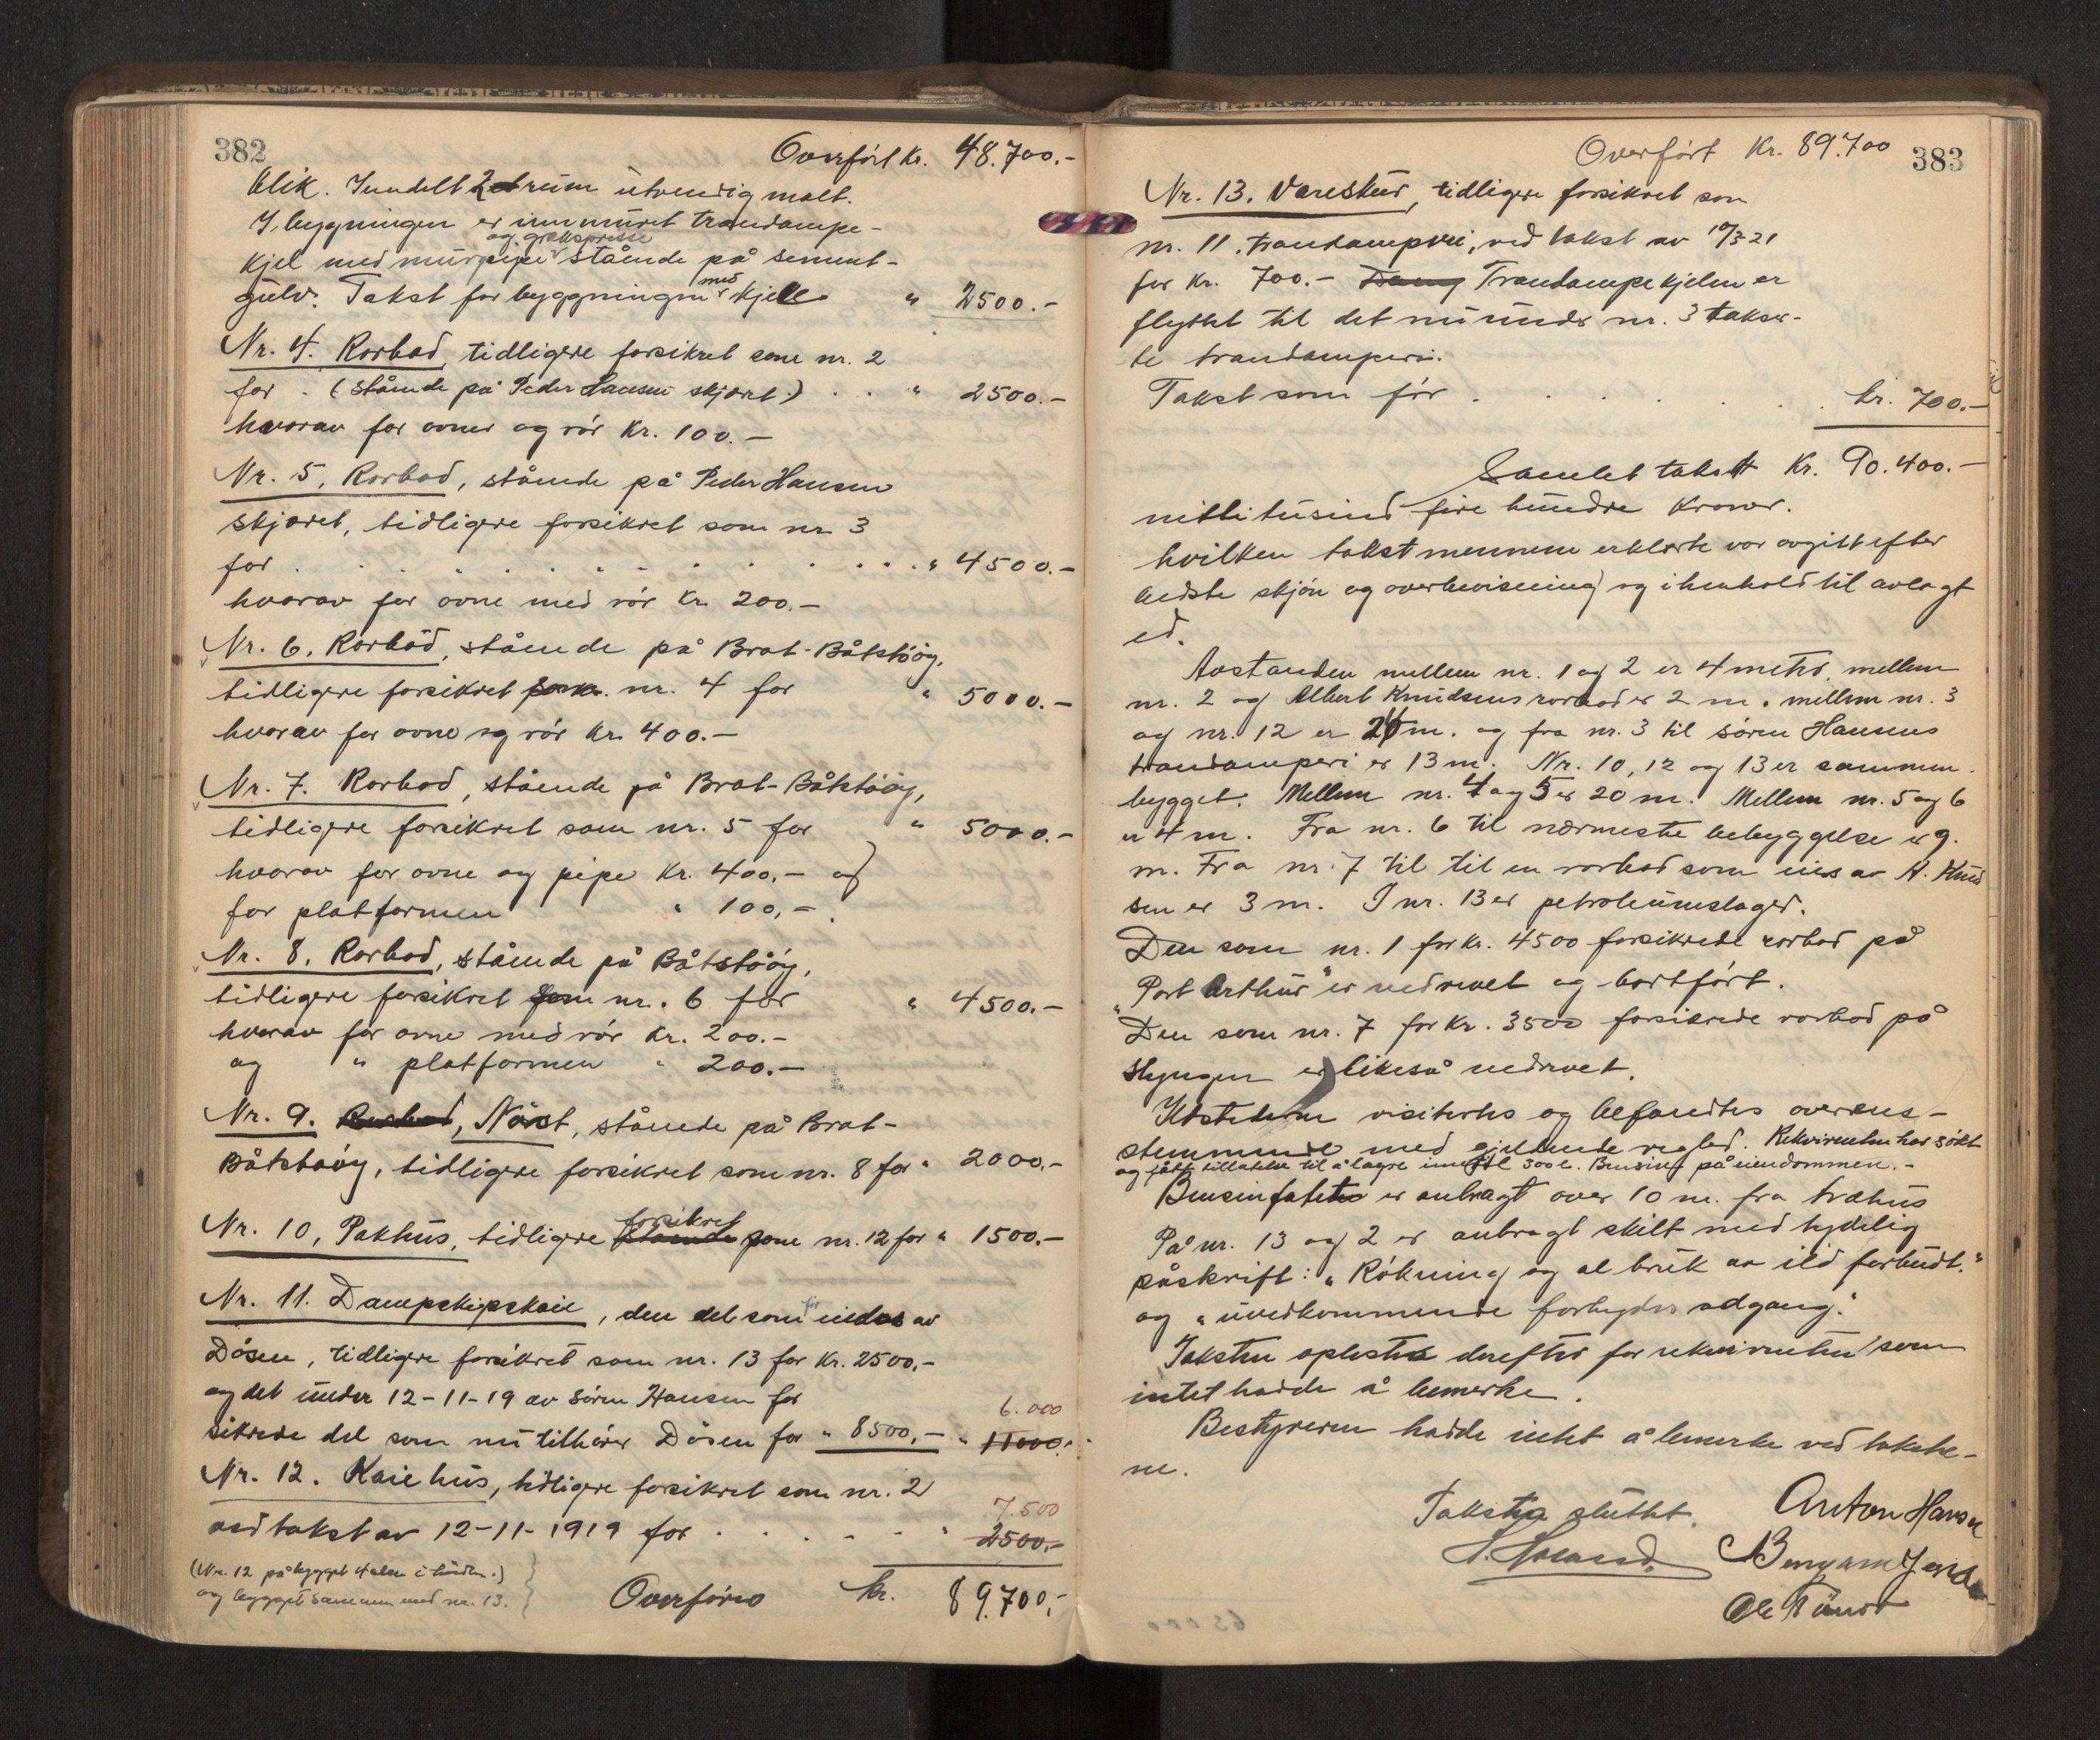 382
Overført Kr. 48.700.-
blik. Inndelt 2 rum utvendig malt.
I bygningen er innmuret trandampe-
og graksepresse
kjel med murpipe stående på sement-
med
gulv. Takst for byggningen kjele " 2500.-
Nr. 4. Rorbod, tidligere forsikret som nr. 2
for . (stående på Peder Hansen skjæret.) . . " 2500.-
hvorav for ovner og rör Kr. 100.-
Nr. 5, Rorbod, stående på Peder Hansen
skjæret, tidligere forsikret som nr 3
for . . . . . . . . . . . . " 4500.-
hvorav for ovne med rör Kr 200.-
Nr. 6. Rorbod, stående på Brat-Båtstöög,
tidligere forsikret som nr. 4 for " 5000.-
hvorav for ovne og rör Kr. 400.-
Nr. 7. Rorbod, stående på Brat-Båtstöög,
tidligere forsikret som nr. 5 for " 5000.-
hvorav for ovne og pipe Kr. 400,- og
for platformen " 100,-.
Nr. 8, Rorbod, stående på Båtstöög,
tidligere forsikret som nr. 6 for " 4500.-
hvorav for ovne med rör Kr. 200.-
og " platformen " 200.-
Nr. 9. Rorbod, Nöst, stående på Brat-
Båtstöög, tidligere forsikret som nr. 8 for " 2000.-
forsikret
Nr. 10, Pakhus, tidligere stående som nr. 12 for " 1500.-
Nr. 11. Dampskipskaie, den del som för eiedes av
Dösen, tidligere forsikret som nr. 13 for Kr. 2500,-
og det under 12-11-19 av Sören Hansen for
6.000
sikrede del som nu tilhörer Dösen for " 8500,- " 11000.-
Nr. 12. Kaiehus, tidligere forsikret som nr. 2
7.500
ved takst av 12-11-1919 for . . . . . " 2500.-
(Nr. 12 påbygget 4 alen i höiden.)
og bygget sammen med nr. 13.
Overføres kr. 89.700,-
383
Overført Kr. 89.700
Nr. 13. Vareskur, tidligere forsikret som
nr. 11, trandamperi, ved takst av 10/3-21
for Kr. 700.- Damp Trandampekjelen er
flyttet til det nu under nr. 3 takser-
te trandamperi.
Takst som för . . . . . . kr. 700.-
Samlet takst Kr. 90.400.-
nittitusind fire hundre Kroner.
hvilken takst mennene erklærte var avgitt efter
bedste skjön og overbevisning og i henhold til avlagt
ed.
Avstanden mellem nr. 1 og 2 er 4 meter, mellem
nr. 2 og Albert Knudsens rorbod er 2 m. mellem nr. 3
og nr. 12 er m. og fra nr. 3 til Sören Hansens
trandamperi er 13 m. Nr. 10, 12 og 13 er sammen.
bygget. Mellem nr. 4 og 5 er 20 m. Mellem nr. 5 og 6
er 4 m. Fra nr. 6 til nærmeste bebyggelse er 9.
m. Fra nr. 7 til til en rorbod som eies av A. Knud
sen er 3 m. I nr. 13 er petroleumslager.
Den som nr. 1 for kr. 4500 forsikrede rorbod på
"Port Arthur" er nedrevet og bortfört.
Den som nr. 7 for Kr. 3500 forsikrede rorbod på
Hyngen er likeså nedrevet.
Ildstederne visitertes og befandtes overens-
stemmende med gjeldende regler. Rekvirenten har sökt
og fått tillatelse til å lagre inntil 500 l. Bensin på eiendommen.-
Bensinfatet er anbragt over 10 m. fra træhus
På nr. 13 og 2 er anbragt skilt med tydelig
påskrift: "Rökning og al bruk av ild forbudt."
og "uvedkommende forbydes adgang."
Taksten oplestes derefter for rekvirenten som
intet hadde å bemerke.
Bestyreren hadde intet å bemerke ved takste-
ne.
Taksten sluttet. Anton Hansen